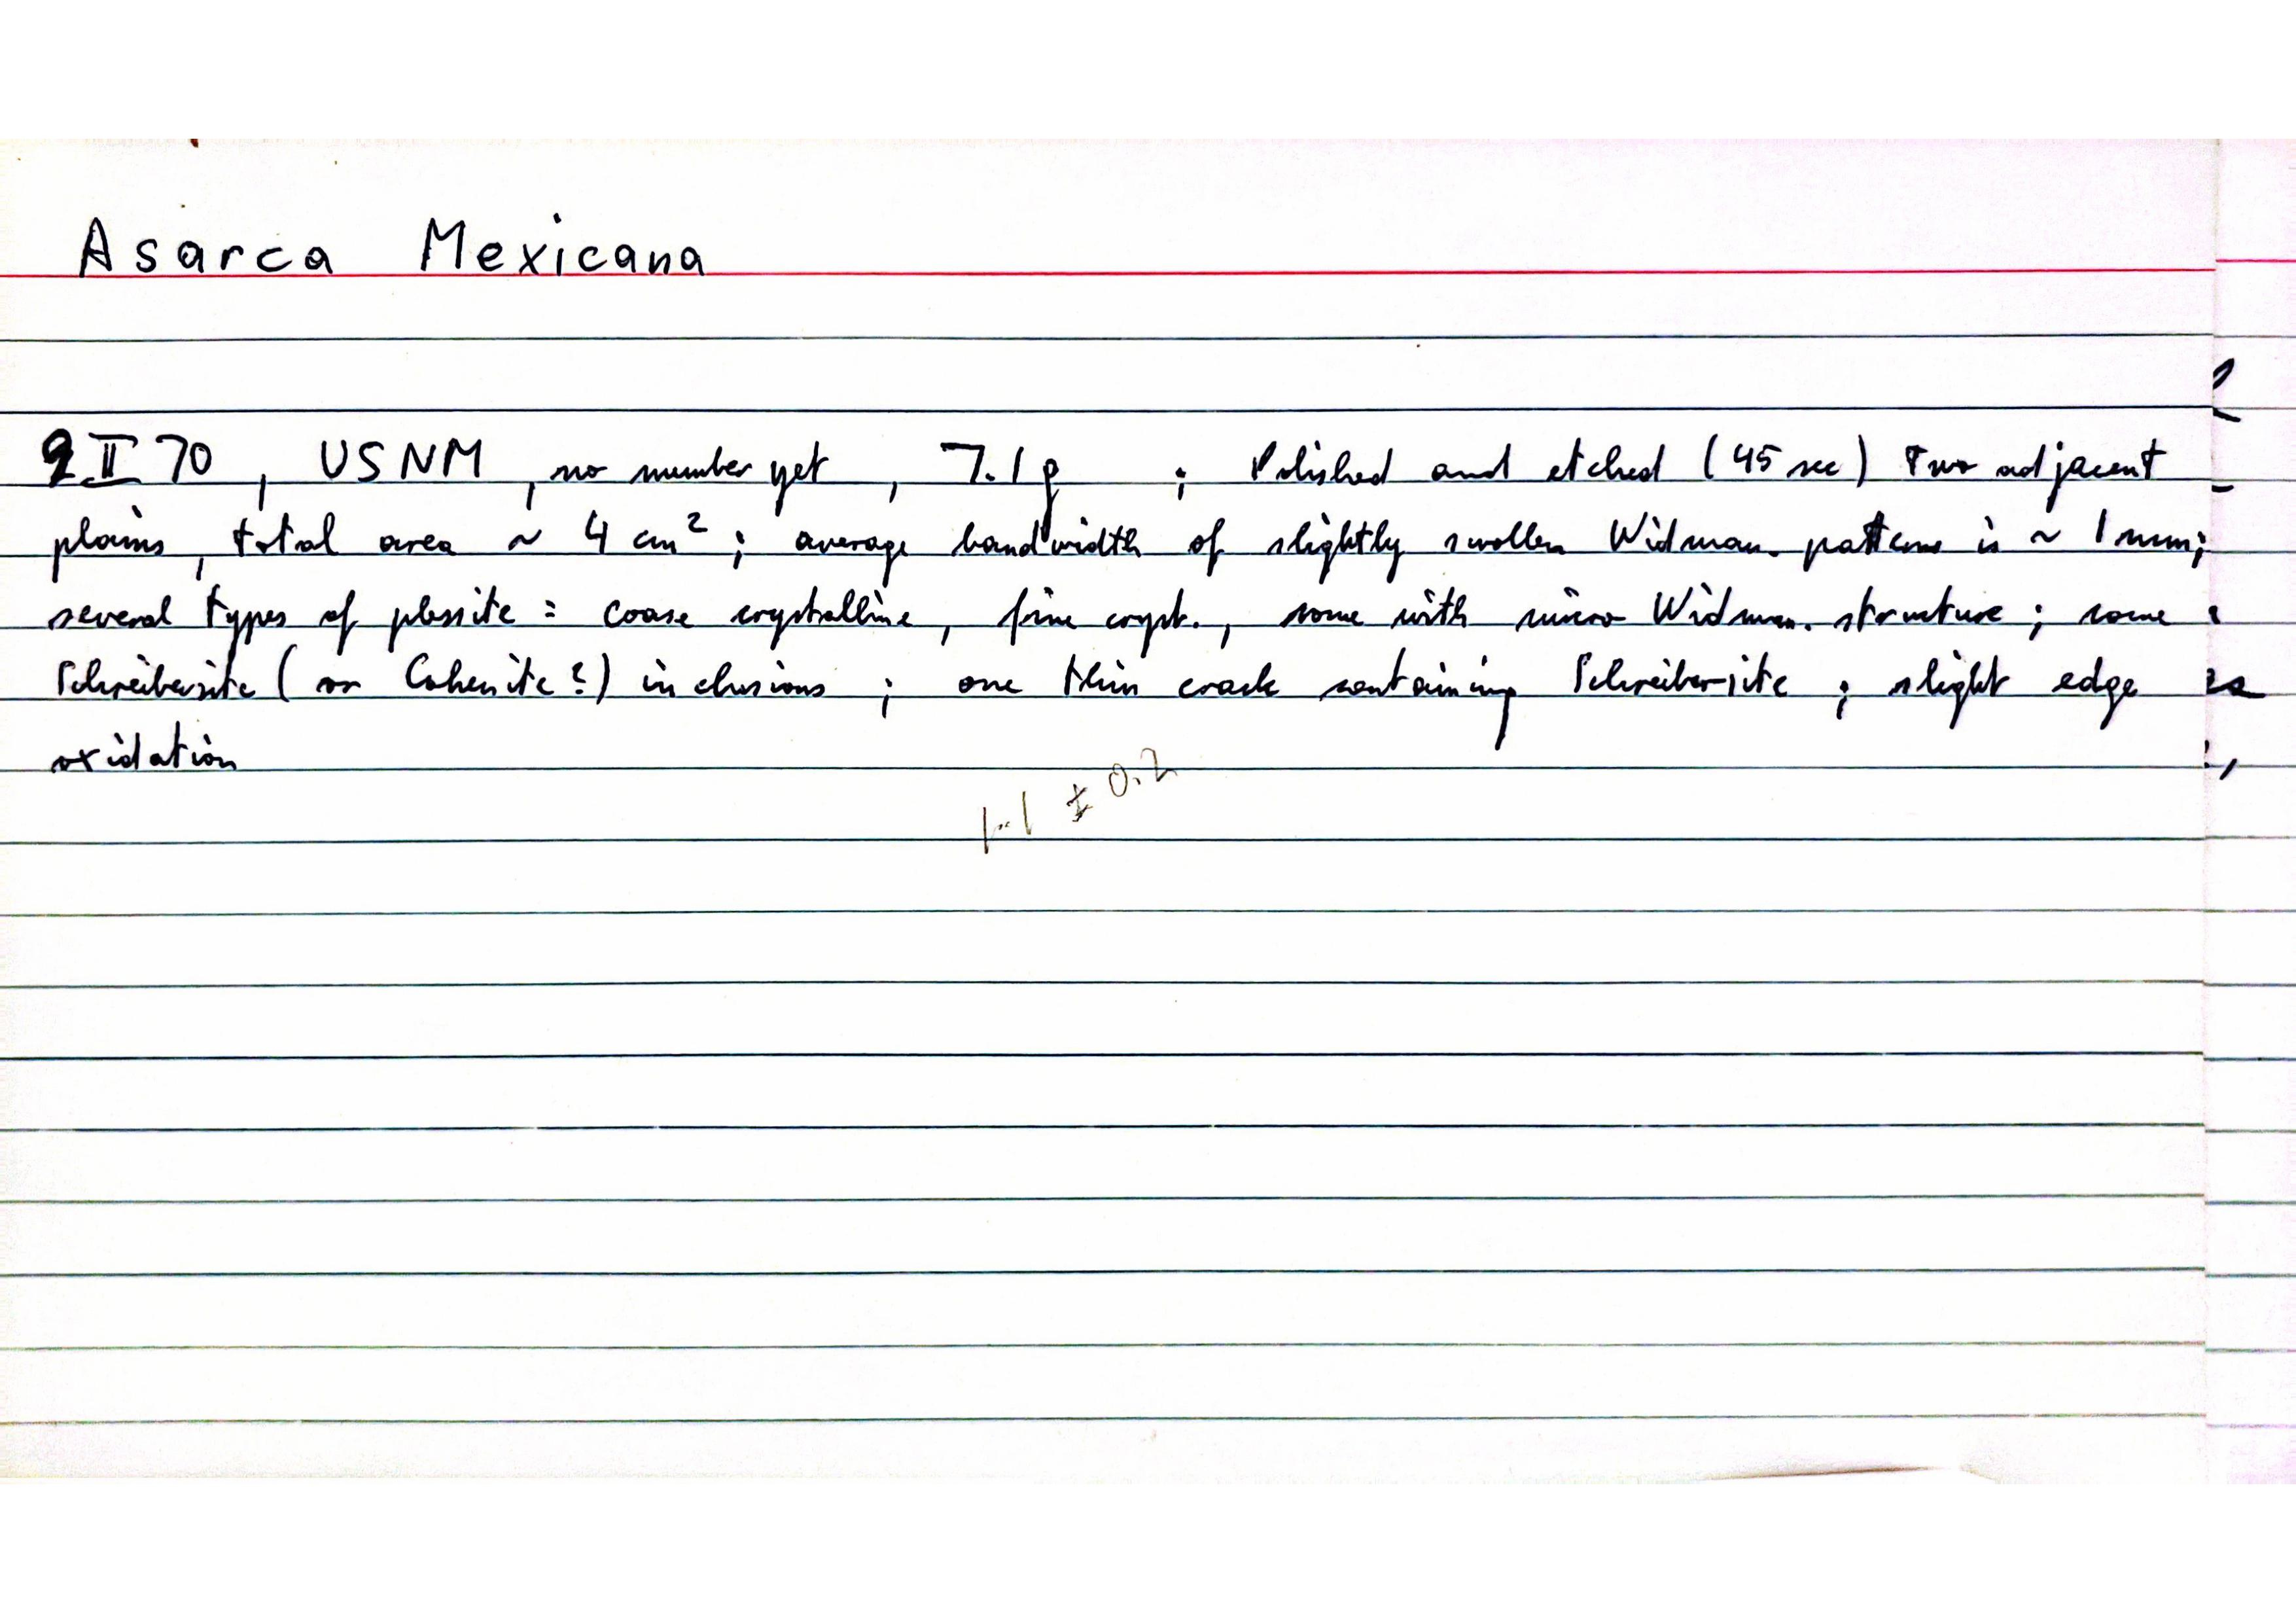 Asarca Mexicana
9 II 70 , USNM , no number yet , 7.1 g ; Polished and etched (45 sec) Two adjacent
plains , total area ~ 4 cm² ; average bandwidth of slightly swollen Widman. pattern is ~ 1 mm ;
several types of plessite : coase crystalline , fine cryst. , some with micro Widman. structure ; some
Schreibersite ( or Cohenite ? ) inclusions ; one thin crack containing Schreibersite ; slight edge
oxidation
1.1 ± 0.2